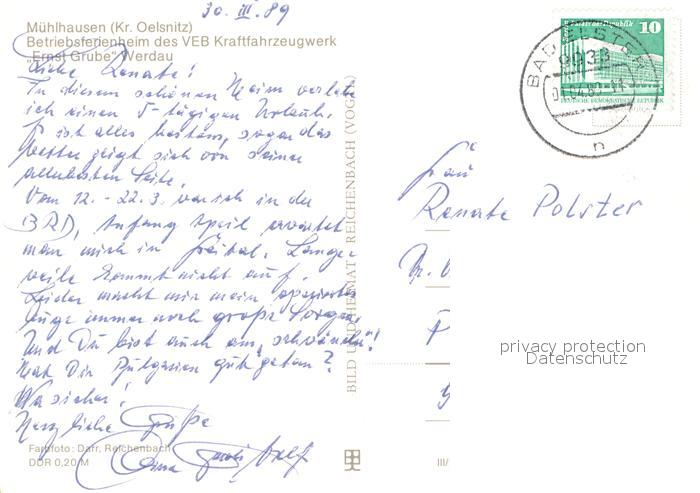 30. III. 89
Mühlhausen (Kr. Oelsnitz)
Betriebsferienheim des VEB Kraftfahrzeugwerk
„Ernst Grube" Werdau
Liebe Renate!
In diesem schönen Heim verlebe
ich einen 5-tägigen Urlaub.
Es ist alles bestens, sogar das
Wetter zeigt sich von seiner
allerbesten Seite.
Vom 12. - 22.3. war ich in der
BRD, Anfang April erwartet
man mich in Freital. Lange-
weile kommt nicht auf.
Leider macht mir mein operiertes
Auge immer noch große Sorgen.
Und Du bist auch am "schwänzen"!
Hat Dir Bulgarien gut getan?
Na sicher!
Herzliche Grüße
Farbfoto: Darr, Reichenbach
DDR 0,20 M
BILD UND HEIMAT REICHENBACH (VOGTL)
III/
10
BAD ELSTER
9933
DEUTSCHE DEMOKRATISCHE REPUBLIK
n
Frau
Renate Polster
privacy protection
Datenschutz